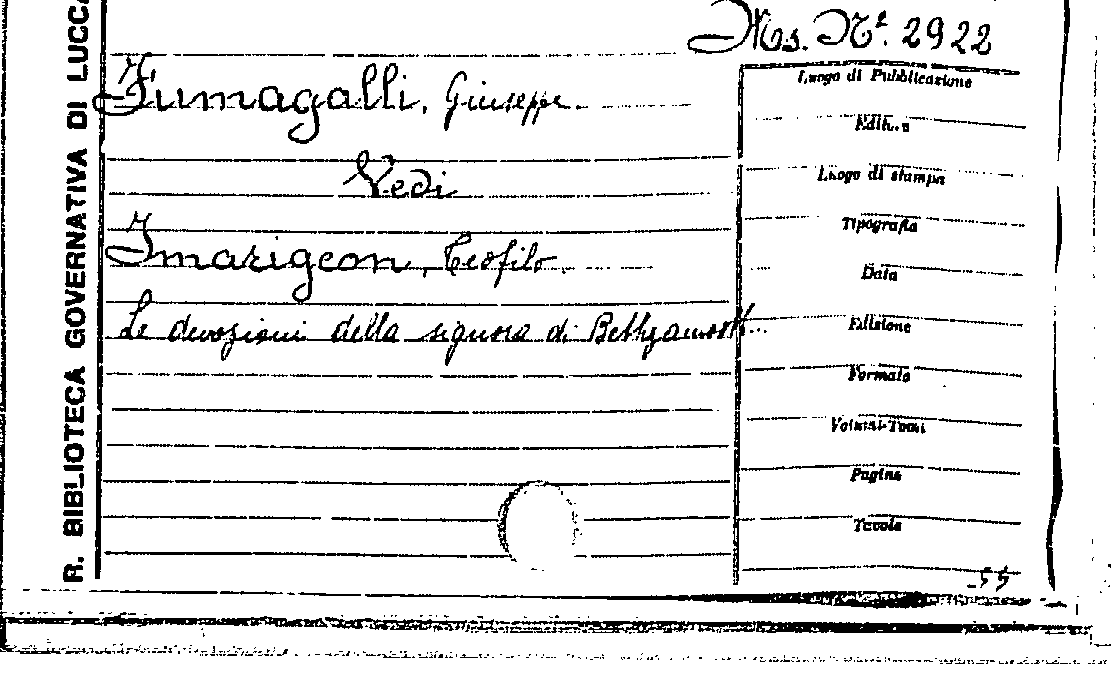 R. BIBLIOTECA GOVERNATIVA DI LUCCA
Ms. N.º 2922
Fumagalli, Giuseppe.
Vedi
Imarigeon, Teofilo.
Le devozioni della signora di
Luogo di Pubblicazione
Editore
Luogo di stampa
Tipografia
Data
Edizione
Formato
Volumi-Tomi
Pagine
Tavole
55